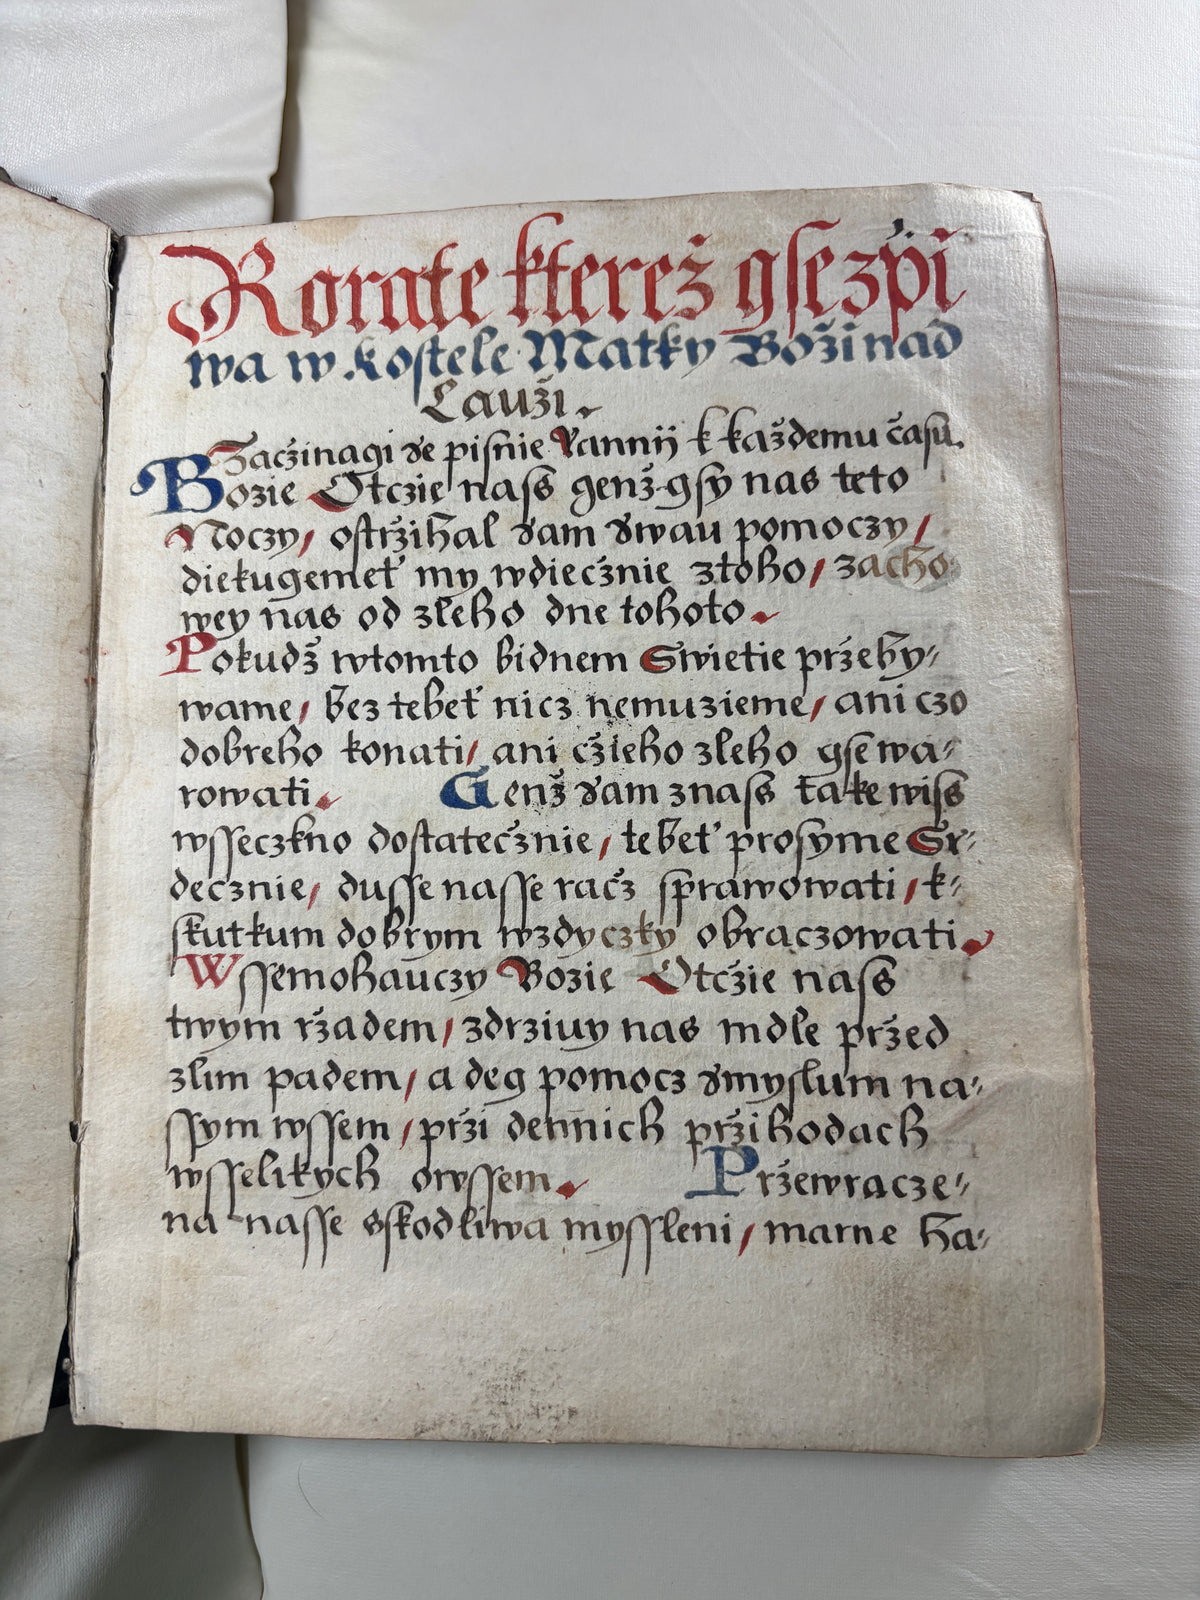 Rorate kterež gse zpi
wa w kostele Matky Boži nad
Lauži.
Začżinagi se pisnie Rannij k každemu času.
Bozie Otczie nass genž gsy nas teto
Noczy, ostržihal sam swau pomoczy,
diekugemeť my wdiecżnie z toho, zacho
wey nas od zleho dne tohoto.
Pokudž w tomto bidnem Swietie pržeby-
wame, bez tebeť nicz nemuzieme, ani czo
dobreho konati, ani cżieho zleho gse wa-
rowati. Genž sam znass take wiss
wsseczkno dostatecżnie, tebeť prosyme Sr-
decznie, dusse nasse racż sprawowati, k-
skutkum dobrym wzdyczky obraczowati.
Wssemohauczy Bozie Otcżie nass
twym ržadem, zdrziuy nas mdle pržed
zlim padem, a deg pomocz smyslum na-
ssym wssem, prži dennich pržihodach
wsselikych owssem. Pržewracze-
na nasse sskodliwa myssleni, marne ha-